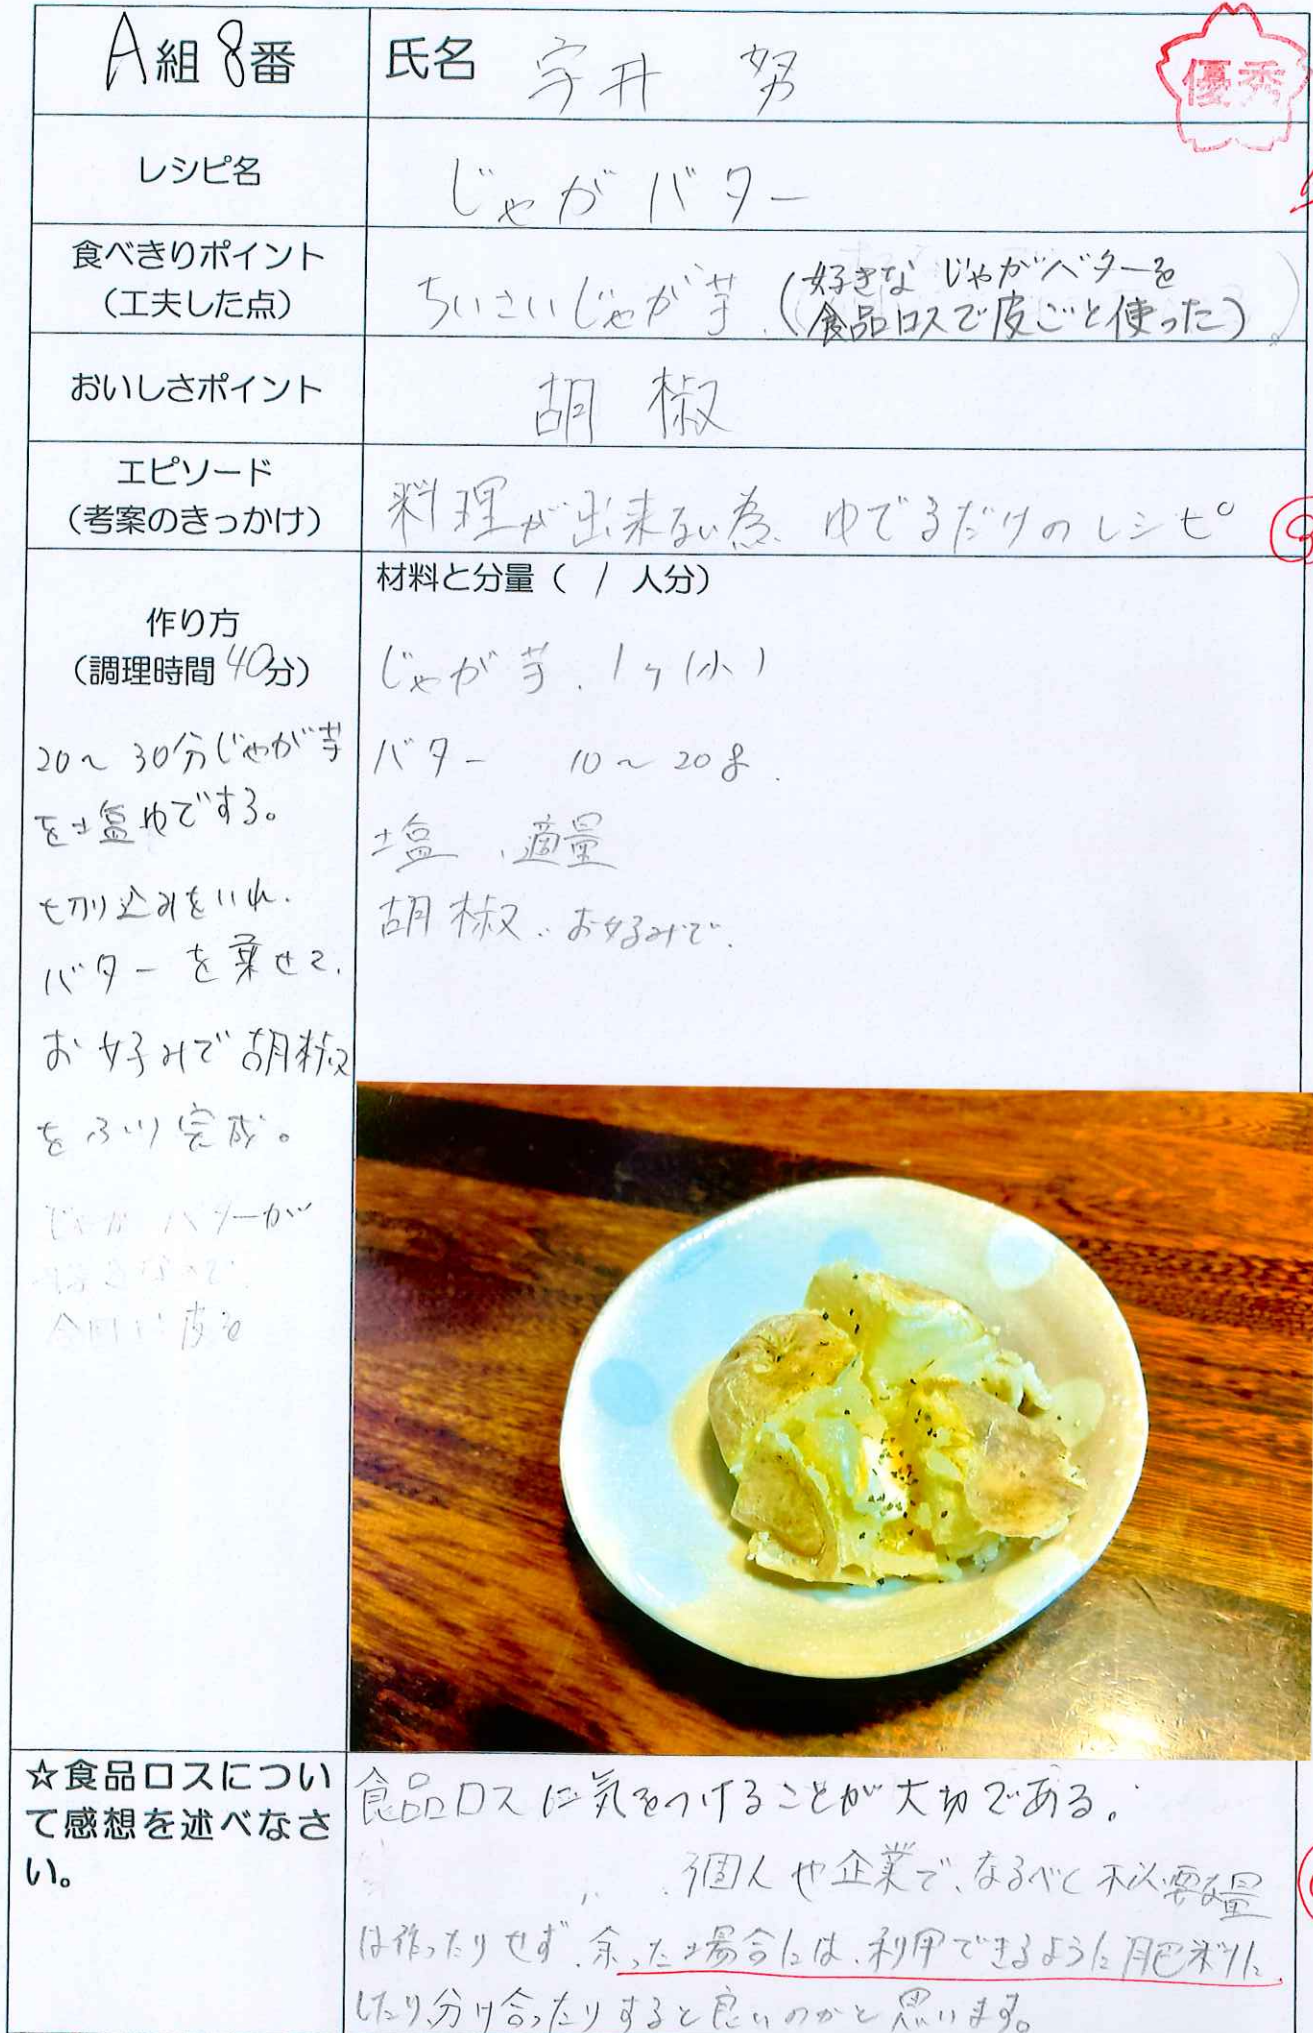 A組8番
氏名 宇井 努
優秀
レシピ名
じゃがバター
食べきりポイント
（工夫した点）
ちいさいじゃが芋.(好きな じゃがバターを
食品ロスで皮ごと使った)。
おいしさポイント
胡椒
エピソード
（考案のきっかけ）
料理が出来ない為、ゆでるだけのレシピ
作り方
（調理時間40分）
20～30分じゃが芋
を塩ゆでする。
切り込みをいれ.
バターを乗せて.
お好みで胡椒
をふり完成。
じゃがバターが
今回は皮を
材料と分量（1人分）
じゃが芋.1ヶ(小)
バター 10～20g.
塩.適量
胡椒..お好みで.
☆食品ロスについ
て感想を述べなさ
い。
食品ロスに気をつけることが大切である。
個人や企業で、なるべく不必要な量
は作ったりせず.余った場合には、利用できるように肥料に
したり、分け合ったりすると良いのかと思います。